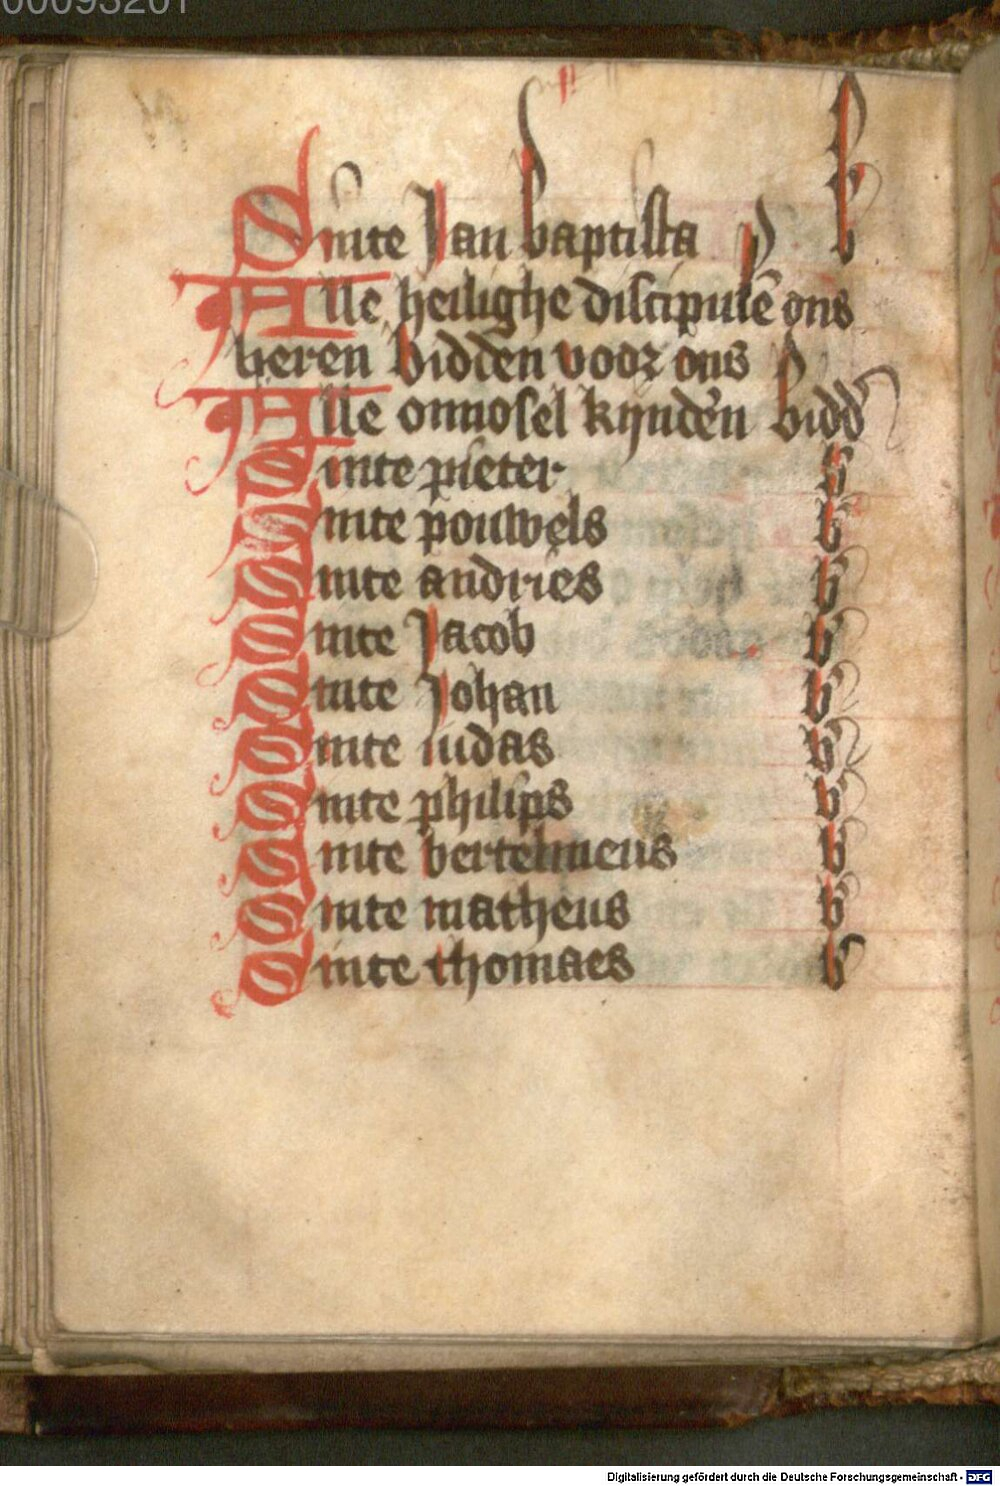 00093201
Sinte Jan baptista b
Alle heilighe discipulē ons
heren bidden voor ons
Alle onnosel kynden bidd
Sinte pieter b
Sinte pouwels b
Sinte andries b
Sinte Jacob b
Sinte Johan b
Sinte iudas b
Sinte philips b
Sinte bertelmeus b
Sinte matheus b
Sinte thomaes b
Digitalisierung gefördert durch die Deutsche Forschungsgemeinschaft - DFG